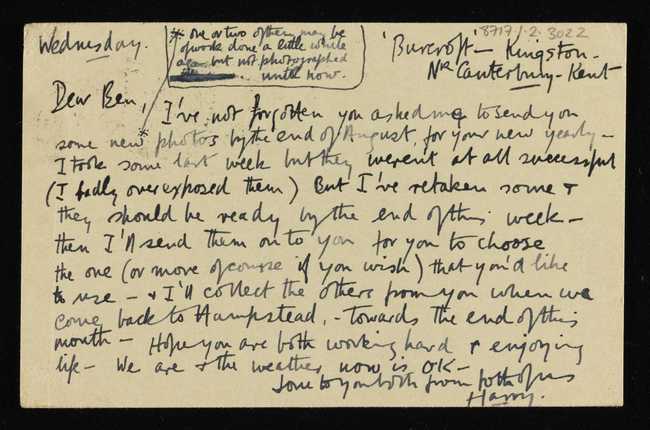 8717/1.2.3022
Wednesday.
* one or two of them may be
of work done a little while
ago but not photographed
until now.
'Burcroft' - Kingston -
Nr Canterbury - Kent
Dear Ben,
I've not forgotten you asked me to send you
some new* photos by the end of August, for your new yearly -
I took some last week but they weren't at all successful
(I badly overexposed them) But I've retaken some &
they should be ready by the end of this week -
then I'll send them on to you for you to choose
the one (or more of course if you wish) that you'd like
to use - & I'll collect the others from you when we
come back to Hampstead, - towards the end of this
month - Hope you are both working hard & enjoying
life - We are & the weather now is OK -
Love to you both from both of us
Harry.